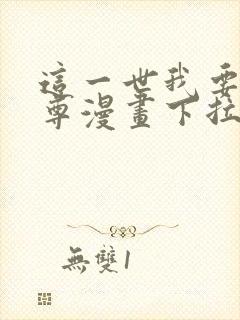 這一世我要
尊漫畫下拉
無雙1